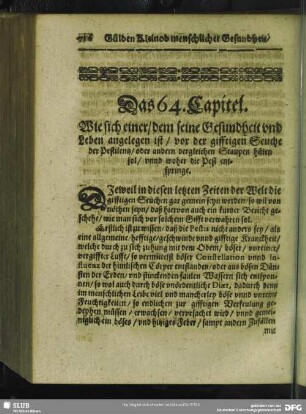 Gülden Kleinod menschlicher Gesundheit/
Das 64. Capitel.
Wie sich einer/dem seine Gesundheit vnd
Leben angelegen ist / vor der gifftigen Seuche
der Pestilentz/oder andern dergleichen Staupen hüten
sol/ vnnd woher die Pest ent-
springe.
DJeweil in diesen letzten Zeiten der Welt die
gifftigen Seuchen gar gemein seyn werden/so wil von
nöthen seyn/daß hiervon auch ein kurtzer Bericht ge-
schehe/wie man sich vor solchem Gifft verwahren sol.
Erstlich ist zu wissen/ daß die Pestis nicht anders sey/ als
eine allgemeine hefftige/geschwinde vnnd gifftige Kranckheit/
welche durch zu sich ziehung mit dem Odem/ böser / vnreiner/
vergiffter Lufft/ so vermittelst böser Constellation vnnd In-
fluentz der himlischen Cörper entstanden/oder aus bösen Dün-
sten der Erden/ vnd stinckenden faulen Wassern sich entspon-
nen/ so wol auch durch böse vnordentliche Diæt, dadurch denn
im menschlichen Leibe viel vnd mancherley böse vnnd vnreine
Feuchtigkeiten / so endlichen zur gifftigen Verfeulung ge-
müssen / erwachsen/ verursachet wird / vnnd gemei-
niglich ein böses / vnd hitziges Feber/ sampt andern Zufällen
mit
SLUB
DFG